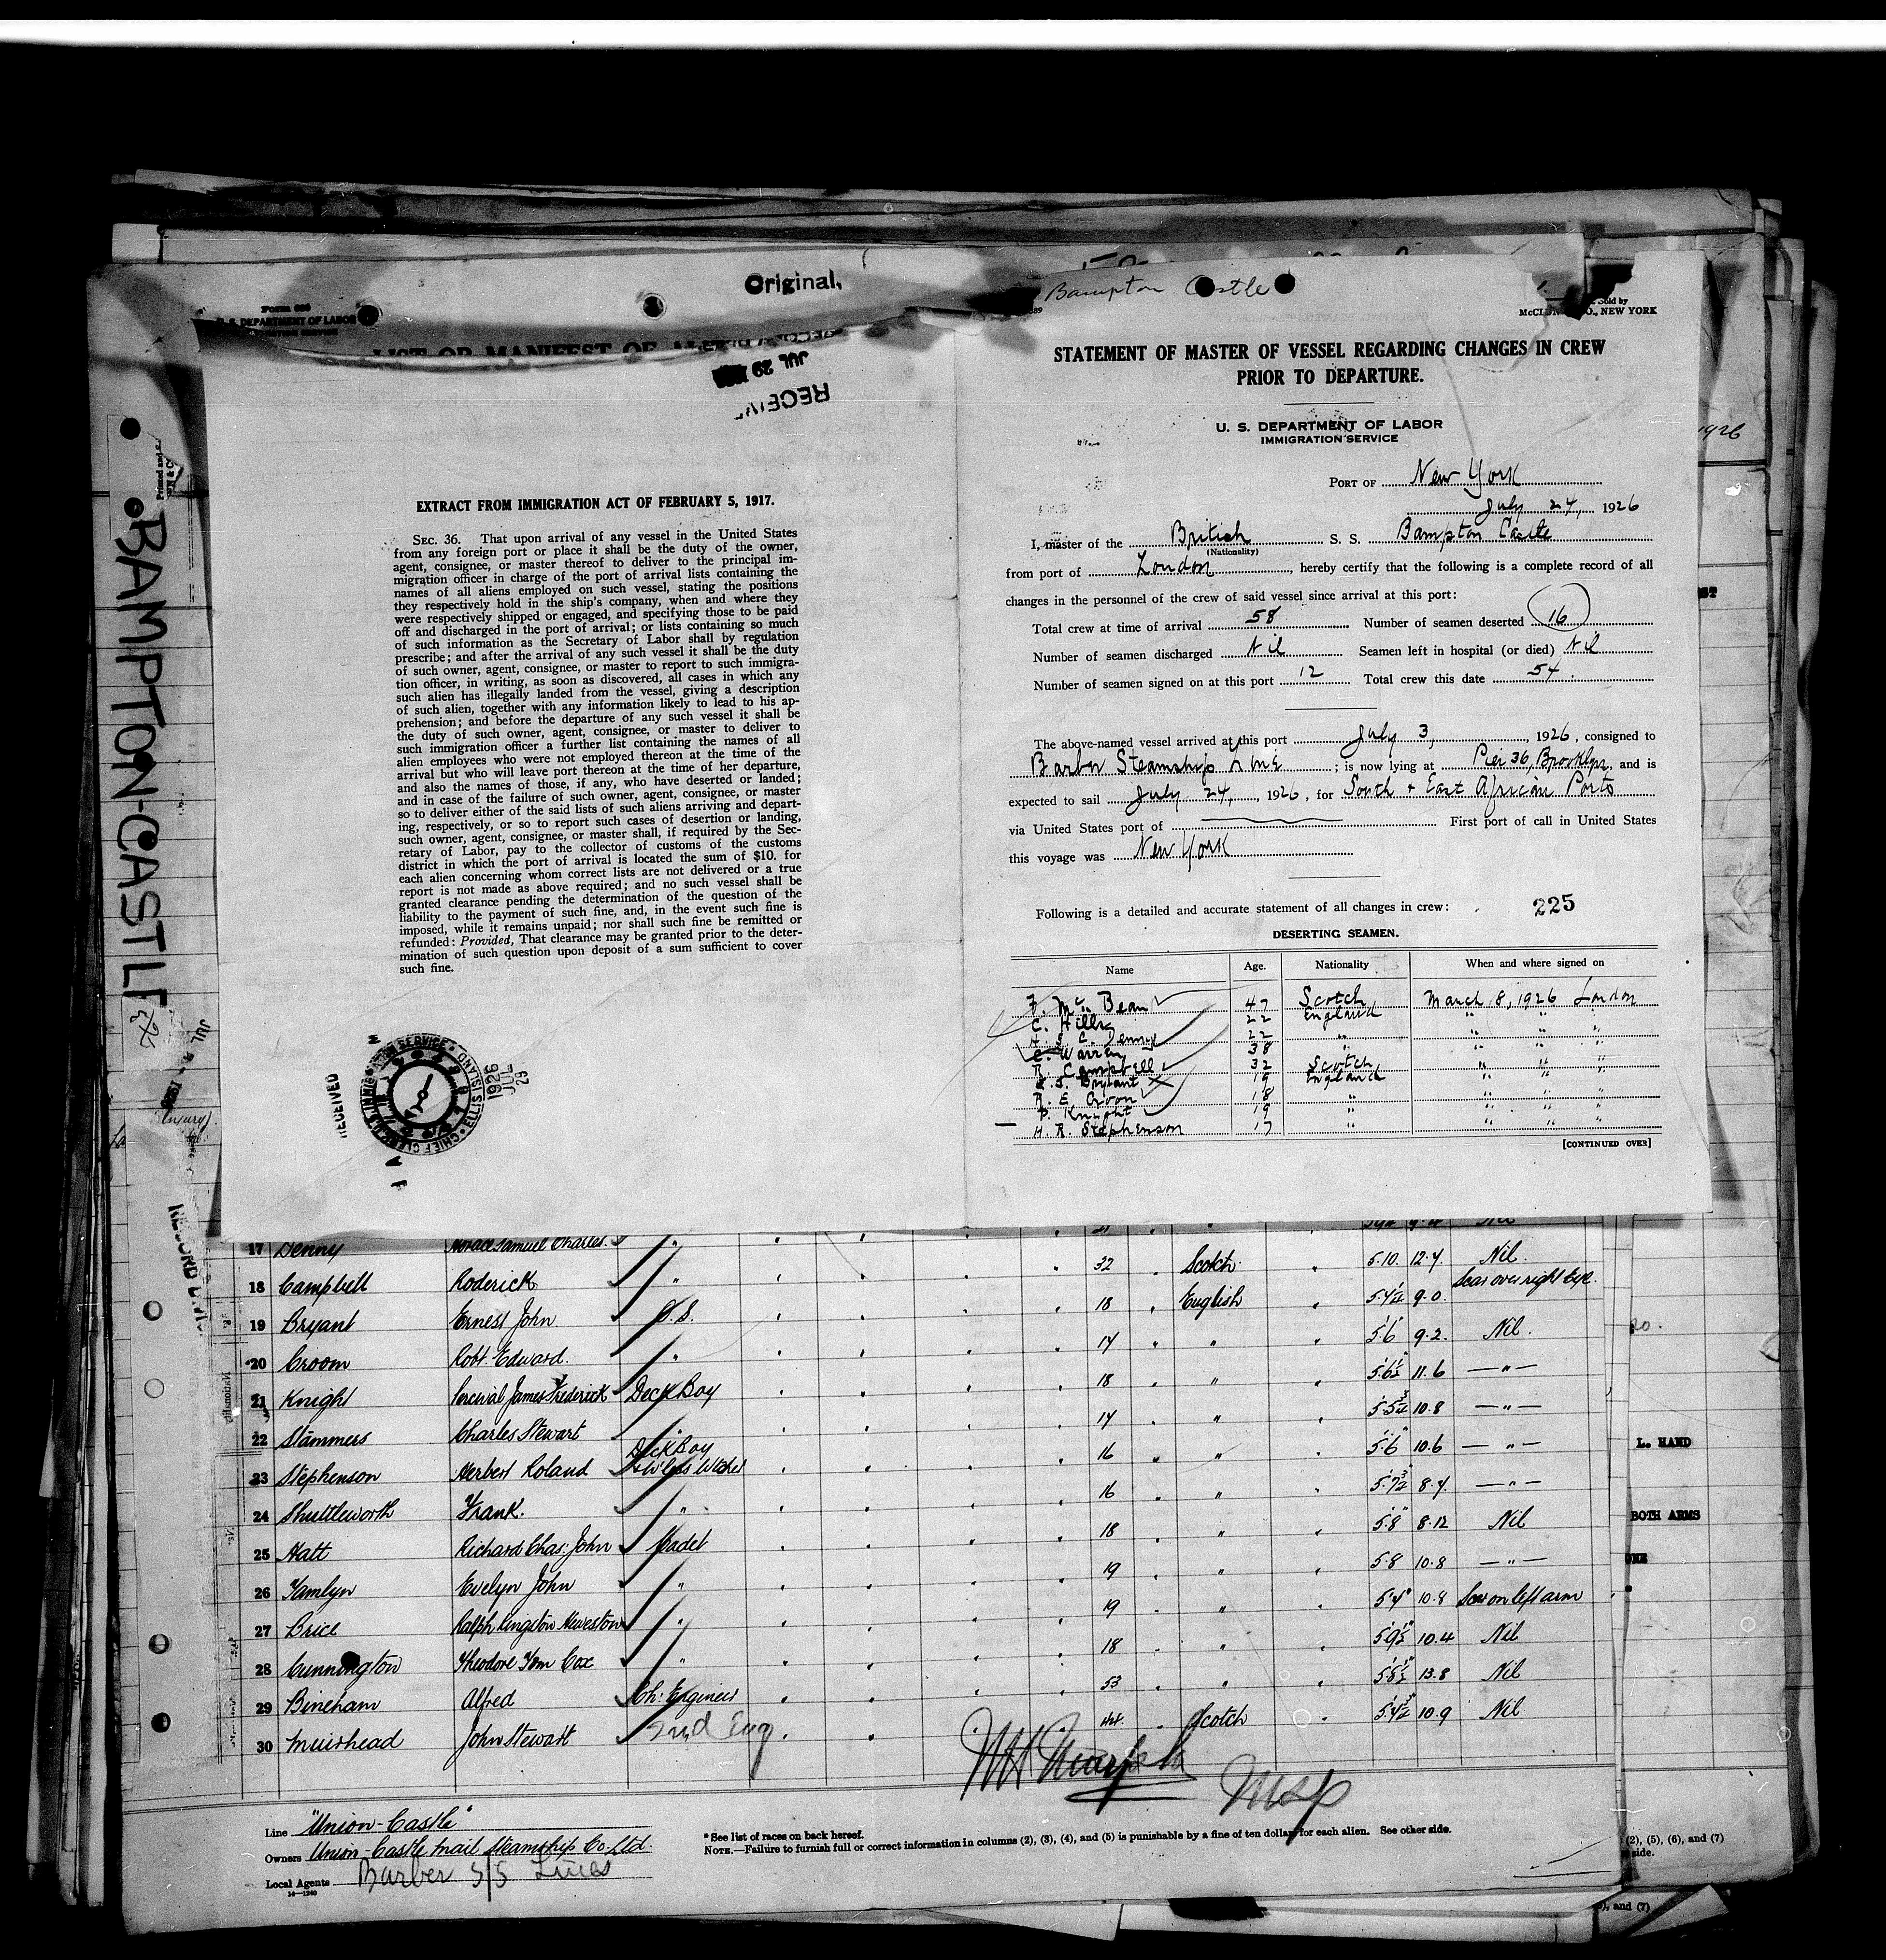 Original.
Form 689
U. S. DEPARTMENT OF LABOR
JUL 29
RECEIV
EXTRACT FROM IMMIGRATION ACT OF FEBRUARY 5, 1917.
SEC. 36. That upon arrival of any vessel in the United States
from any foreign port or place it shall be the duty of the owner,
agent, consignee, or master thereof to deliver to the principal im-
migration officer in charge of the port of arrival lists containing the
names of all aliens employed on such vessel, stating the positions
they respectively hold in the ship's company, when and where they
were respectively shipped or engaged, and specifying those to be paid
off and discharged in the port of arrival; or lists containing so much
of such information as the Secretary of Labor shall by regulation
prescribe; and after the arrival of any such vessel it shall be the duty
of such owner, agent, consignee, or master to report to such immigra-
tion officer, in writing, as soon as discovered, all cases in which any
such alien has illegally landed from the vessel, giving a description
of such alien, together with any information likely to lead to his ap-
prehension; and before the departure of any such vessel it shall be
the duty of such owner, agent, consignee, or master to deliver to
such immigration officer a further list containing the names of all
alien employees who were not employed thereon at the time of the
arrival but who will leave port thereon at the time of her departure,
and also the names of those, if any, who have deserted or landed;
and in case of the failure of such owner, agent, consignee, or master
so to deliver either of the said lists of such aliens arriving and depart-
ing, respectively, or so to report such cases of desertion or landing,
such owner, agent, consignee, or master shall, if required by the Sec-
retary of Labor, pay to the collector of customs of the customs
district in which the port of arrival is located the sum of $10. for
each alien concerning whom correct lists are not delivered or a true
report is not made as above required; and no such vessel shall be
granted clearance pending the determination of the question of the
liability to the payment of such fine, and, in the event such fine is
imposed, while it remains unpaid; nor shall such fine be remitted or
refunded: Provided, That clearance may be granted prior to the deter-
mination of such question upon deposit of a sum sufficient to cover
such fine.
RECEIVED
1926 JUL 29
BAMPTON-CASTLE
Bampton Castle
STATEMENT OF MASTER OF VESSEL REGARDING CHANGES IN CREW
PRIOR TO DEPARTURE.
U. S. DEPARTMENT OF LABOR
IMMIGRATION SERVICE
PORT OF New York
July 24, 1926
I, master of the British S. S. Bampton Castle
(Nationality)
from port of London, hereby certify that the following is a complete record of all
changes in the personnel of the crew of said vessel since arrival at this port:
Total crew at time of arrival 58 Number of seamen deserted 16
Number of seamen discharged Nil Seamen left in hospital (or died) Nil
Number of seamen signed on at this port 12 Total crew this date 54.
The above-named vessel arrived at this port July 3, 1926, consigned to
Barber Steamship Line; is now lying at Pier 36, Brooklyn, and is
expected to sail July 24, 1926, for South & East African Ports
via United States port of First port of call in United States
this voyage was New York
Following is a detailed and accurate statement of all changes in crew: 225
DESERTING SEAMEN.
Name Age. Nationality When and where signed on
F. McBean 47 Scotch March 8, 1926 London
C. Hills 22 England " " "
H. S. C. Denny 22 " " " "
E. Warren 38 " " " "
R. Campbell 32 Scotch " " "
E. J. Bryant 19 England " " "
R. E. Croom 18 " " " "
P. Knight 19 " " " "
H. R. Stephenson 17 " " " "
[CONTINUED OVER]
17 Denny Horace Samuel Charles. "
18 Campbell Roderick " 32 Scotch 5.10. 12.7. Nil.
19 Bryant Ernest John O.S. 18 English 9.0. Scar over right Eye.
20 Croom Robt. Edward. " 5.6 9.2. Nil.
21 Knight Percival James Frederick Deck Boy 18 " 11.6 — " —
22 Stammers Charles Stewart " 10.8 — " —
23 Stephenson Herbert Roland Deck Boy 16 " 5.6 10.6 — " —
24 Shuttleworth Frank. " 16 "
25 Hatt Richard Chas: John Cadet 18 " 5.8 8.12 Nil
26 Tamlyn Evelyn John " 19 " 5.8 10.8 — " —
27 Brice Ralph Kingston " 19 " 5.4 10.8 Scar on left arm
28 Cunnington Theodore Wm Cox " 18 " 10.4 Nil
29 Bineham Alfred Ch: Engineer 53 " 13.8 Nil
30 Muirhead John Stewart 2nd Eng 44. Scotch 10.9 Nil
L. HAND
BOTH ARMS
Line "Union-Castle"
Owners Union-Castle Mail Steamship Co. Ltd.
Local Agents Barber S/S Lines
14—1240
* See list of races on back hereof.
NOTE.—Failure to furnish full or correct information in columns (2), (3), (4), and (5) is punishable by a fine of ten dollars for each alien. See other side.
(2), (5), (6), and (7)
side.
), and (7)